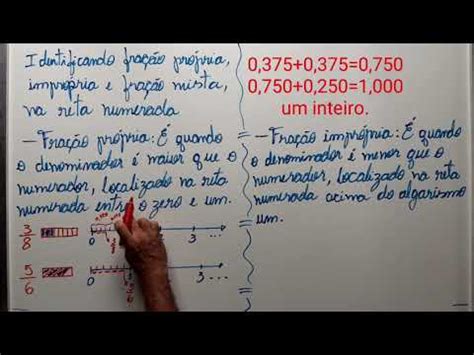 Identificando fração própria,
imprópria e fração mista,
na reta numerada
— Fração própria: É quando
o denominador é maior que o
numerador, localizado na reta
numerada entre o zero e um.
3/8
0
3 ...
5/6
0
3 ...
0,375+0,375=0,750
0,750+0,250=1,000
um inteiro.
— Fração imprópria: É quando
o denominador é menor que o
numerador, localizado na reta
numerada acima do algarismo
um.